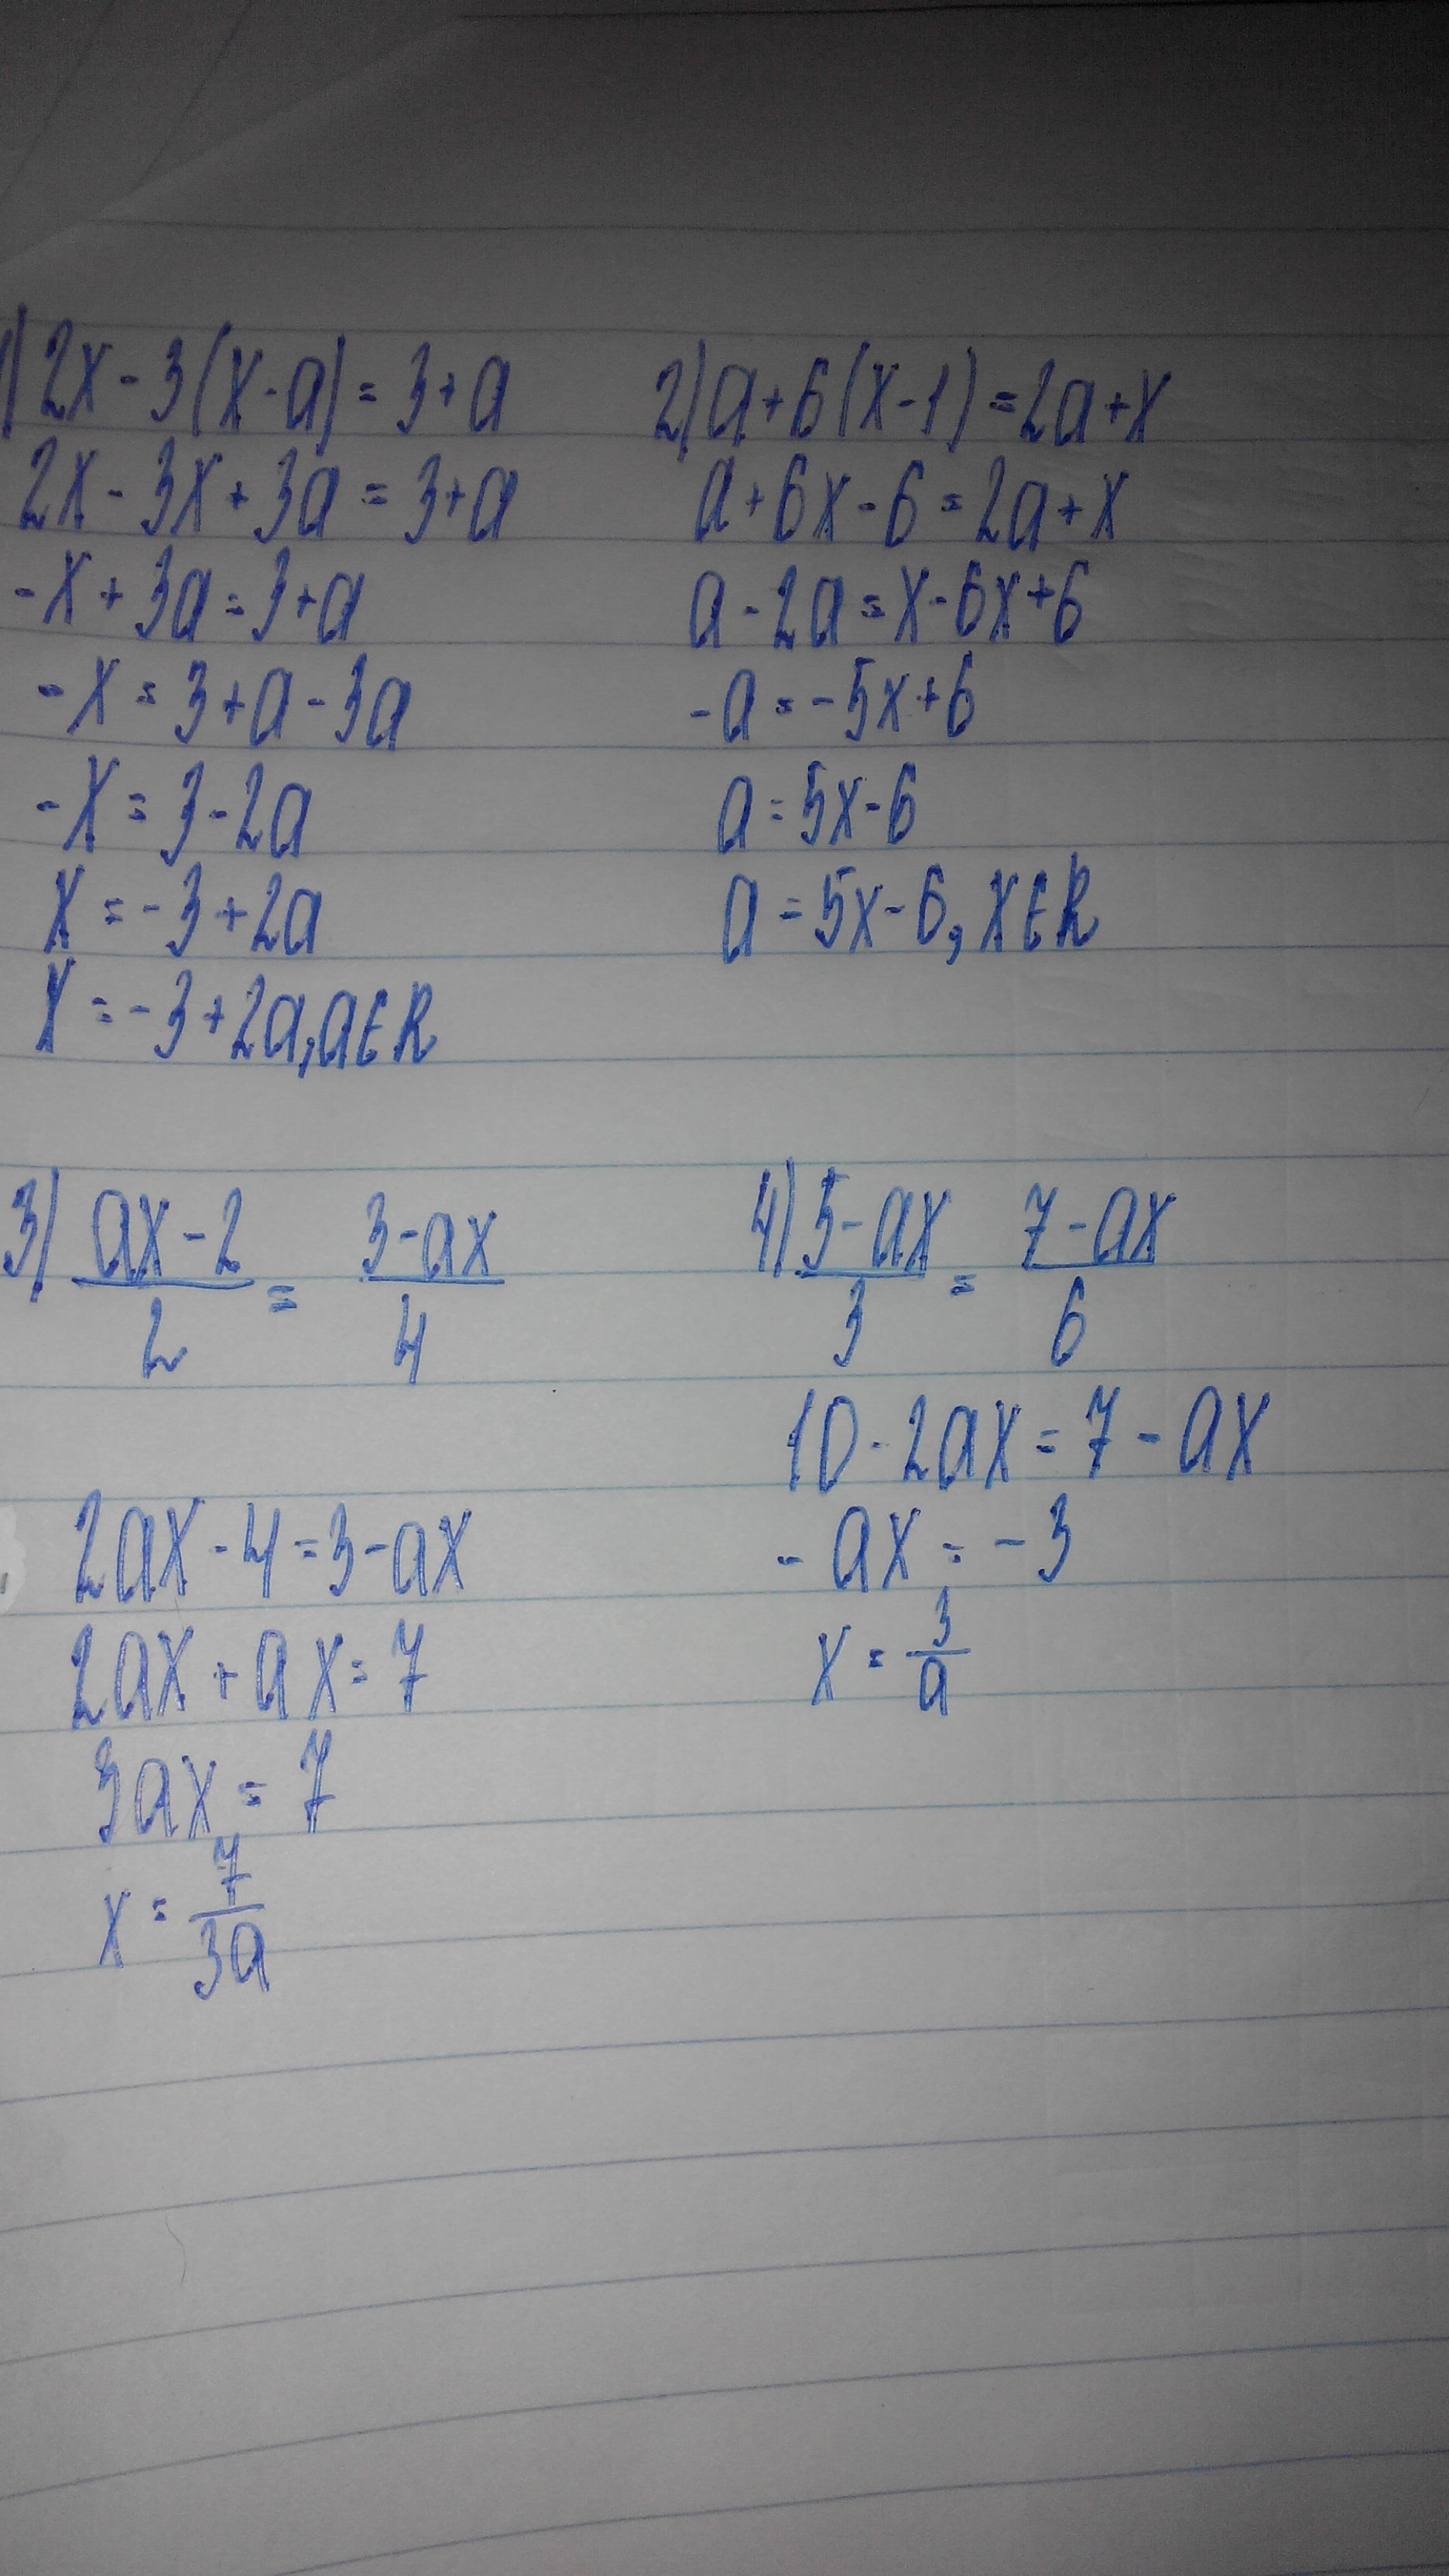 1) 2x - 3(x - a) = 3 + a
2x - 3x + 3a = 3 + a
-x + 3a = 3 + a
-x = 3 + a - 3a
-x = 3 - 2a
x = -3 + 2a
x = -3 + 2a, a ∈ R
2) a + 6(x - 1) = 2a + x
a + 6x - 6 = 2a + x
a - 2a = x - 6x + 6
-a = -5x + 6
a = 5x - 6
a = 5x - 6, x ∈ R
3) (ax - 2)/2 = (3 - ax)/4
2ax - 4 = 3 - ax
2ax + ax = 7
3ax = 7
x = 7/(3a)
4) (5 - ax)/3 = (7 - ax)/6
10 - 2ax = 7 - ax
-ax = -3
x = 3/a